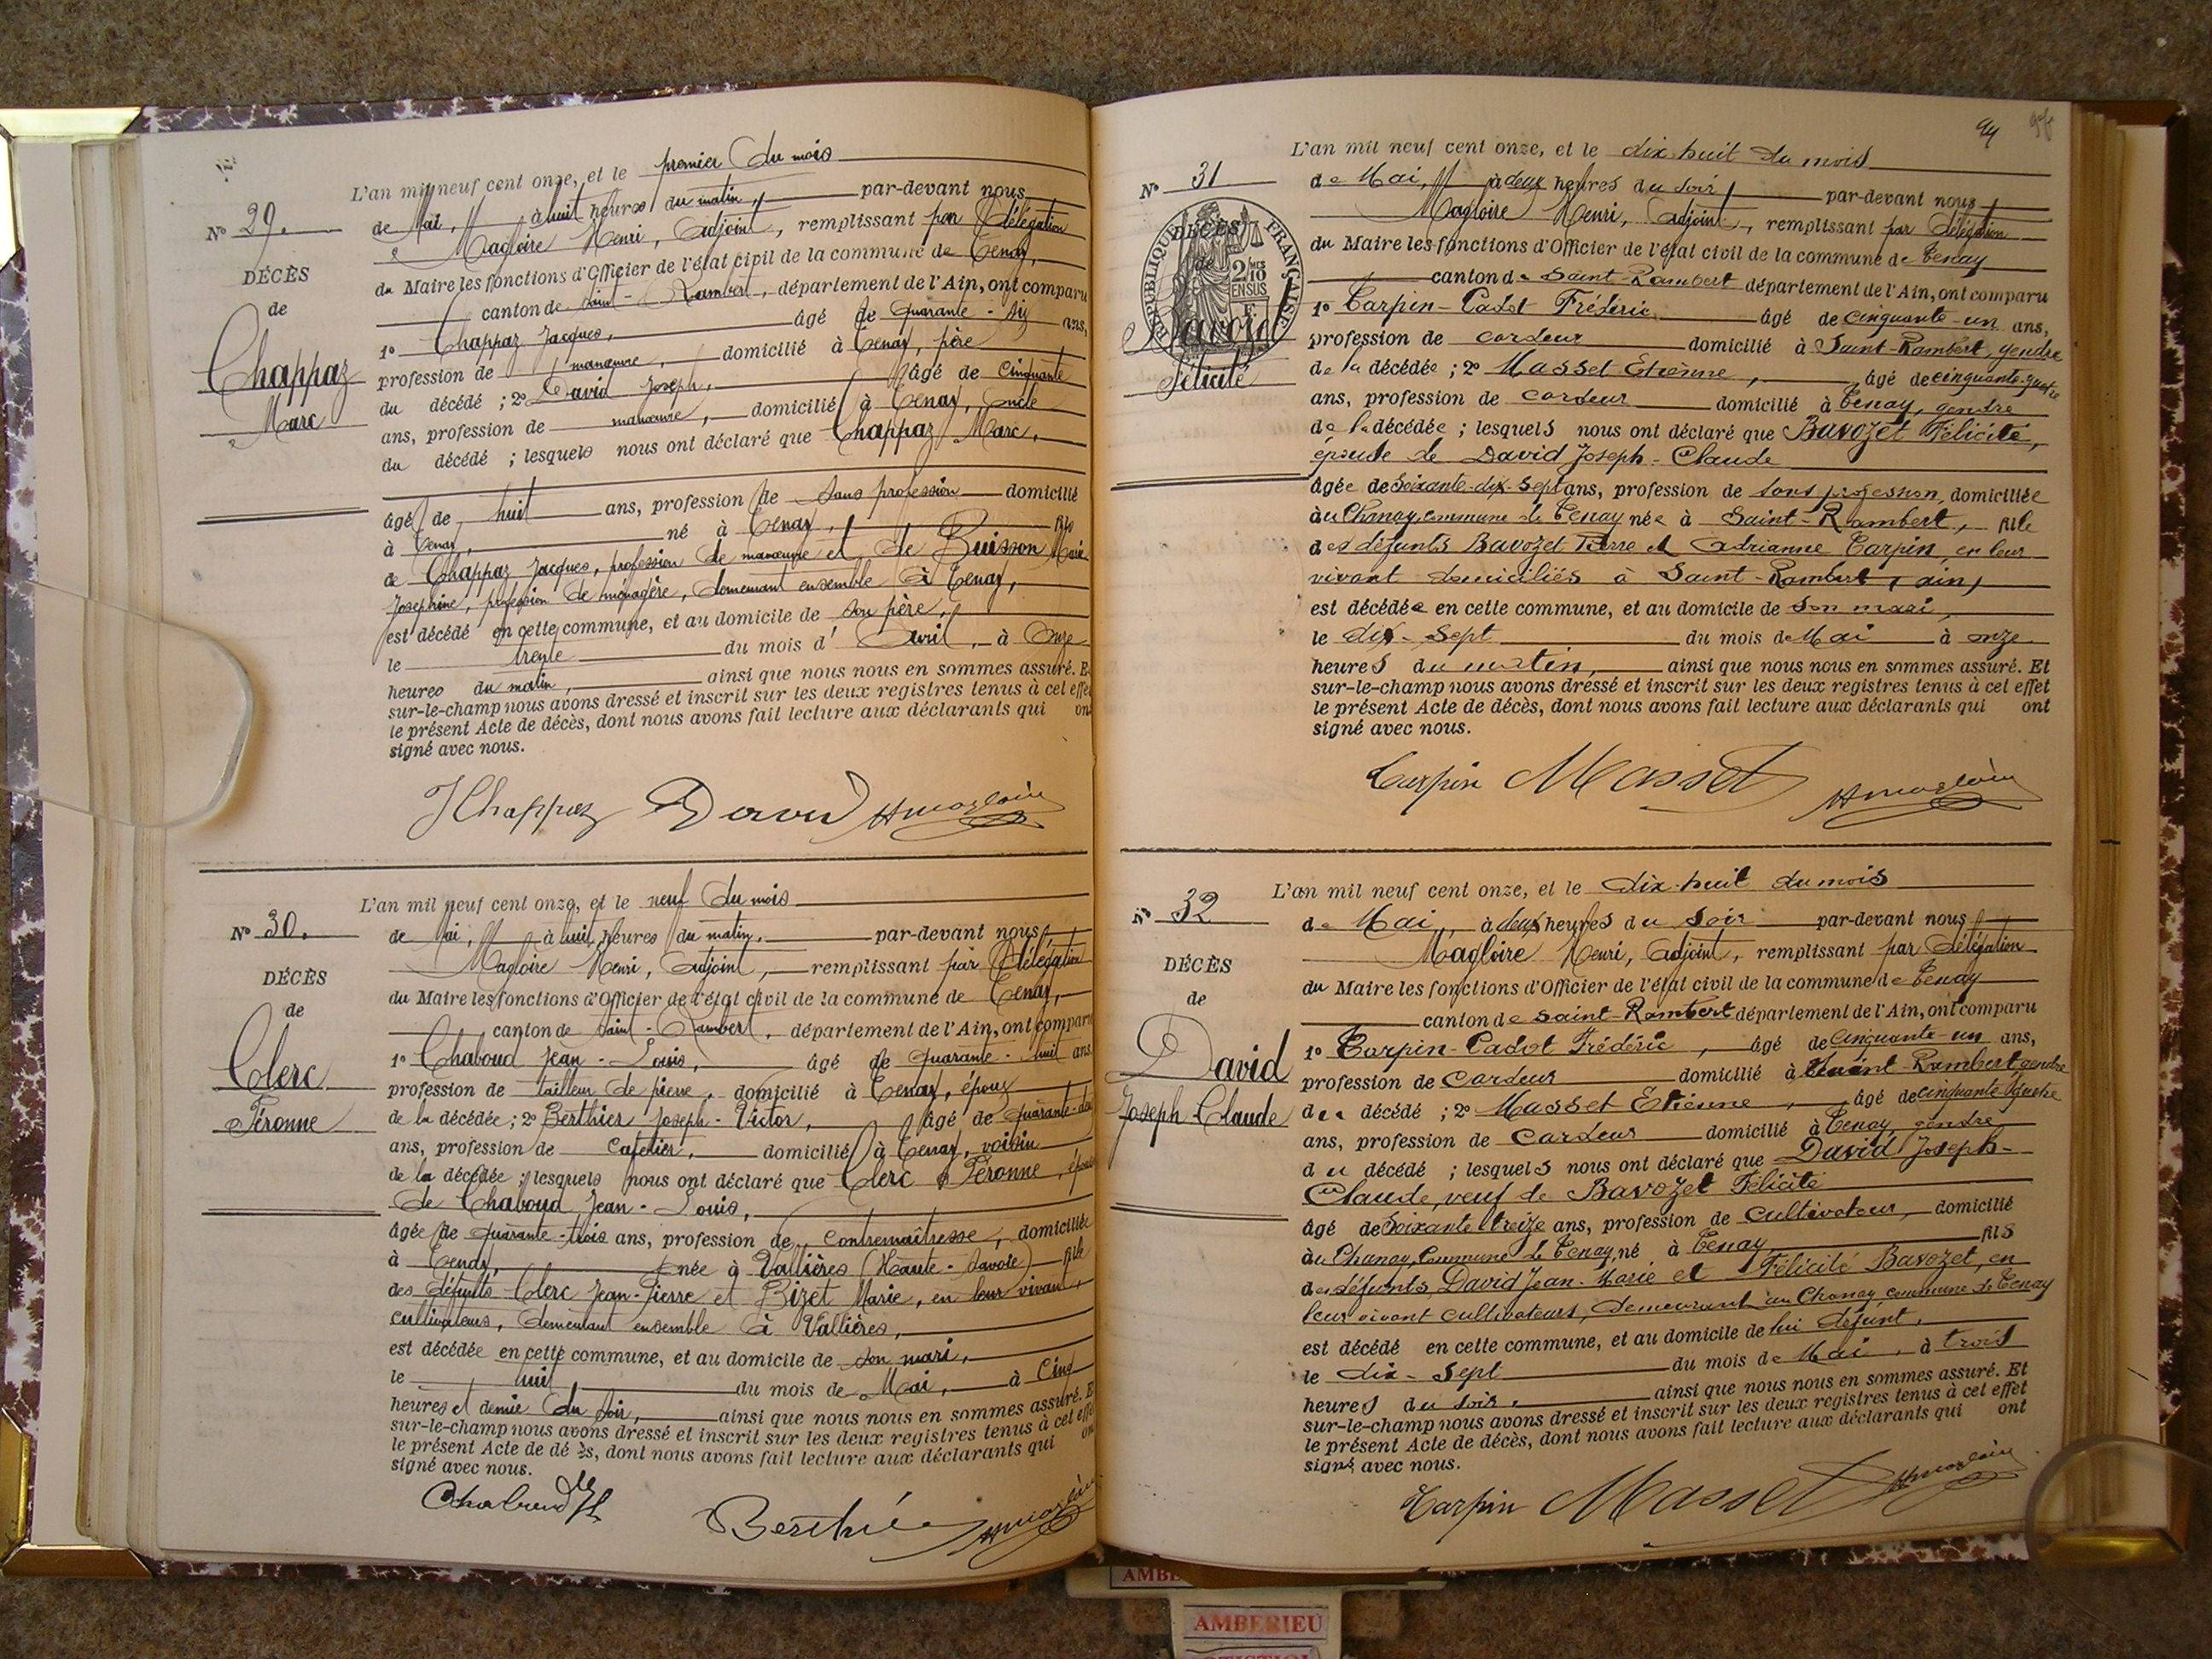 Nº 29.
DÉCÈS
de
Chappaz
Marc
L'an mil neuf cent onze, et le premier du mois
de Mai, à huit heures du matin, par-devant nous
Magloire Henri, adjoint, remplissant par délégation
du Maire les fonctions d'Officier de l'état civil de la commune de Tenay,
canton de Saint-Rambert, département de l'Ain, ont comparu
1º Chappaz Jacques, âgé de quarante-six ans,
profession de manœuvre, domicilié à Tenay, père
du décédé ; 2º David Joseph, âgé de Cinquante
ans, profession de manœuvre, domicilié à Tenay, oncle
du décédé ; lesquels nous ont déclaré que Chappaz Marc,
âgé de huit ans, profession de sans profession domicilié
à Tenay, né à Tenay, fils
de Chappaz Jacques, profession de manœuvre et de Buisson Marie
Joséphine, profession de ménagère, demeurant ensemble à Tenay,
est décédé en cette commune, et au domicile de son père,
le trente du mois d'Avril, à Onze
heures du matin, ainsi que nous nous en sommes assuré. Et
sur-le-champ nous avons dressé et inscrit sur les deux registres tenus à cet effet
le présent Acte de décès, dont nous avons fait lecture aux déclarants qui ont
signé avec nous.
JChappaz David HMagloire
Nº 30.
DÉCÈS
de
Clerc
Péronne
L'an mil neuf cent onze, et le neuf du mois
de Mai, à huit heures du matin, par-devant nous
Magloire Henri, adjoint, remplissant par délégation
du Maire les fonctions d'Officier de l'état civil de la commune de Tenay,
canton de Saint-Rambert, département de l'Ain, ont comparu
1º Chaboud Jean-Louis, âgé de quarante-huit ans
profession de tailleur de pierre, domicilié à Tenay, époux
de la décédée ; 2º Berthier Joseph-Victor, âgé de quarante-deux
ans, profession de Cafetier, domicilié à Tenay, voisin
de la décédée ; lesquels nous ont déclaré que Clerc Péronne, épouse
de Chaboud Jean-Louis,
âgée de quarante-trois ans, profession de Contremaîtresse, domiciliée
à Tenay, née à Vallières (Haute-Savoie) fille
des défunts Clerc Jean-Pierre et Bizet Marie, en leur vivant,
cultivateurs, demeurant ensemble à Vallières,
est décédée en cette commune, et au domicile de son mari,
le huit du mois de Mai, à Cinq
heures et demie du soir, ainsi que nous nous en sommes assuré. Et
sur-le-champ nous avons dressé et inscrit sur les deux registres tenus à cet effet
le présent Acte de décès, dont nous avons fait lecture aux déclarants qui ont
signé avec nous.
Chaboud Berthier HMagloire
94
Nº 31
DÉCÈS
de
RÉPUBLIQUE FRANÇAISE
2/10 EN SUS
Félicité
L'an mil neuf cent onze, et le dix-huit du mois
de Mai, à deux heures du soir, par-devant nous
Magloire Henri, adjoint, remplissant par délégation
du Maire les fonctions d'Officier de l'état civil de la commune de Tenay
canton de Saint-Rambert département de l'Ain, ont comparu
1º Carpin-Cadot Frédéric âgé de cinquante-un ans,
profession de cardeur domicilié à Saint-Rambert, gendre
de la décédée ; 2º Masset Etienne, âgé de cinquante-quatre
ans, profession de cardeur domicilié à Tenay, gendre
de la décédée ; lesquels nous ont déclaré que Bavozet Félicité,
épouse de David Joseph-Claude
âgée de Soixante-dix-sept ans, profession de sans profession, domiciliée
au Chanay, commune de Tenay née à Saint-Rambert, fille
des défunts Bavozet Pierre et Adrianne Carpin, en leur
vivant domiciliés à Saint-Rambert, (ain)
est décédée en cette commune, et au domicile de son mari,
le dix-sept du mois de Mai à onze
heures du matin, ainsi que nous nous en sommes assuré. Et
sur-le-champ nous avons dressé et inscrit sur les deux registres tenus à cet effet
le présent Acte de décès, dont nous avons fait lecture aux déclarants qui ont
signé avec nous.
Carpin Masset HMagloire
Nº 32
DÉCÈS
de
David
Joseph-Claude
L'an mil neuf cent onze, et le dix-huit du mois
de Mai, à deux heures du soir par-devant nous
Magloire Henri, adjoint, remplissant par délégation
du Maire les fonctions d'Officier de l'état civil de la commune de Tenay
canton de Saint-Rambert département de l'Ain, ont comparu
1º Carpin-Cadot Frédéric, âgé de Cinquante-un ans,
profession de Cardeur domicilié à Saint-Rambert gendre
du décédé ; 2º Masset Etienne, âgé de cinquante quatre
ans, profession de Cardeur domicilié à Tenay, gendre
du décédé ; lesquels nous ont déclaré que David Joseph-
Claude, veuf de Bavozet Félicité
âgé de Soixante treize ans, profession de Cultivateur, domicilié
au Chanay, Commune de Tenay né à Tenay fils
des défunts David Jean-Marie et Félicité Bavozet, en
leur vivant cultivateurs, demeurant au Chanay commune de Tenay
est décédé en cette commune, et au domicile de lui défunt,
le dix-sept du mois de Mai, à trois
heures du soir, ainsi que nous nous en sommes assuré. Et
sur-le-champ nous avons dressé et inscrit sur les deux registres tenus à cet effet
le présent Acte de décès, dont nous avons fait lecture aux déclarants qui ont
signé avec nous.
Carpin Masset HMagloire
AMBERIEU